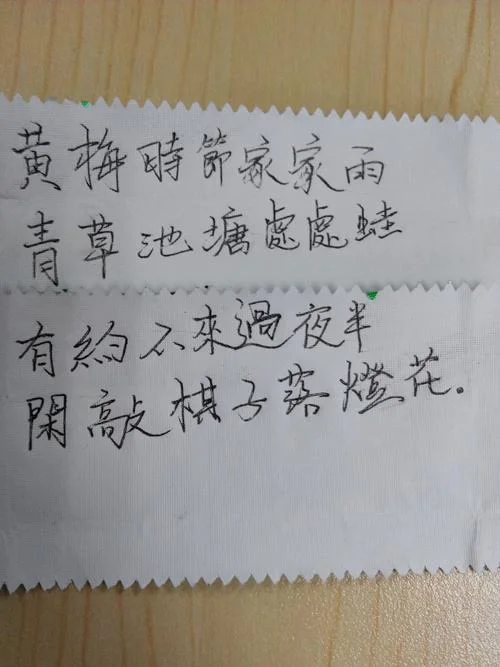 黄梅時節家家雨
青草池塘處處蛙
有約不來過夜半
閑敲棋子落燈花.